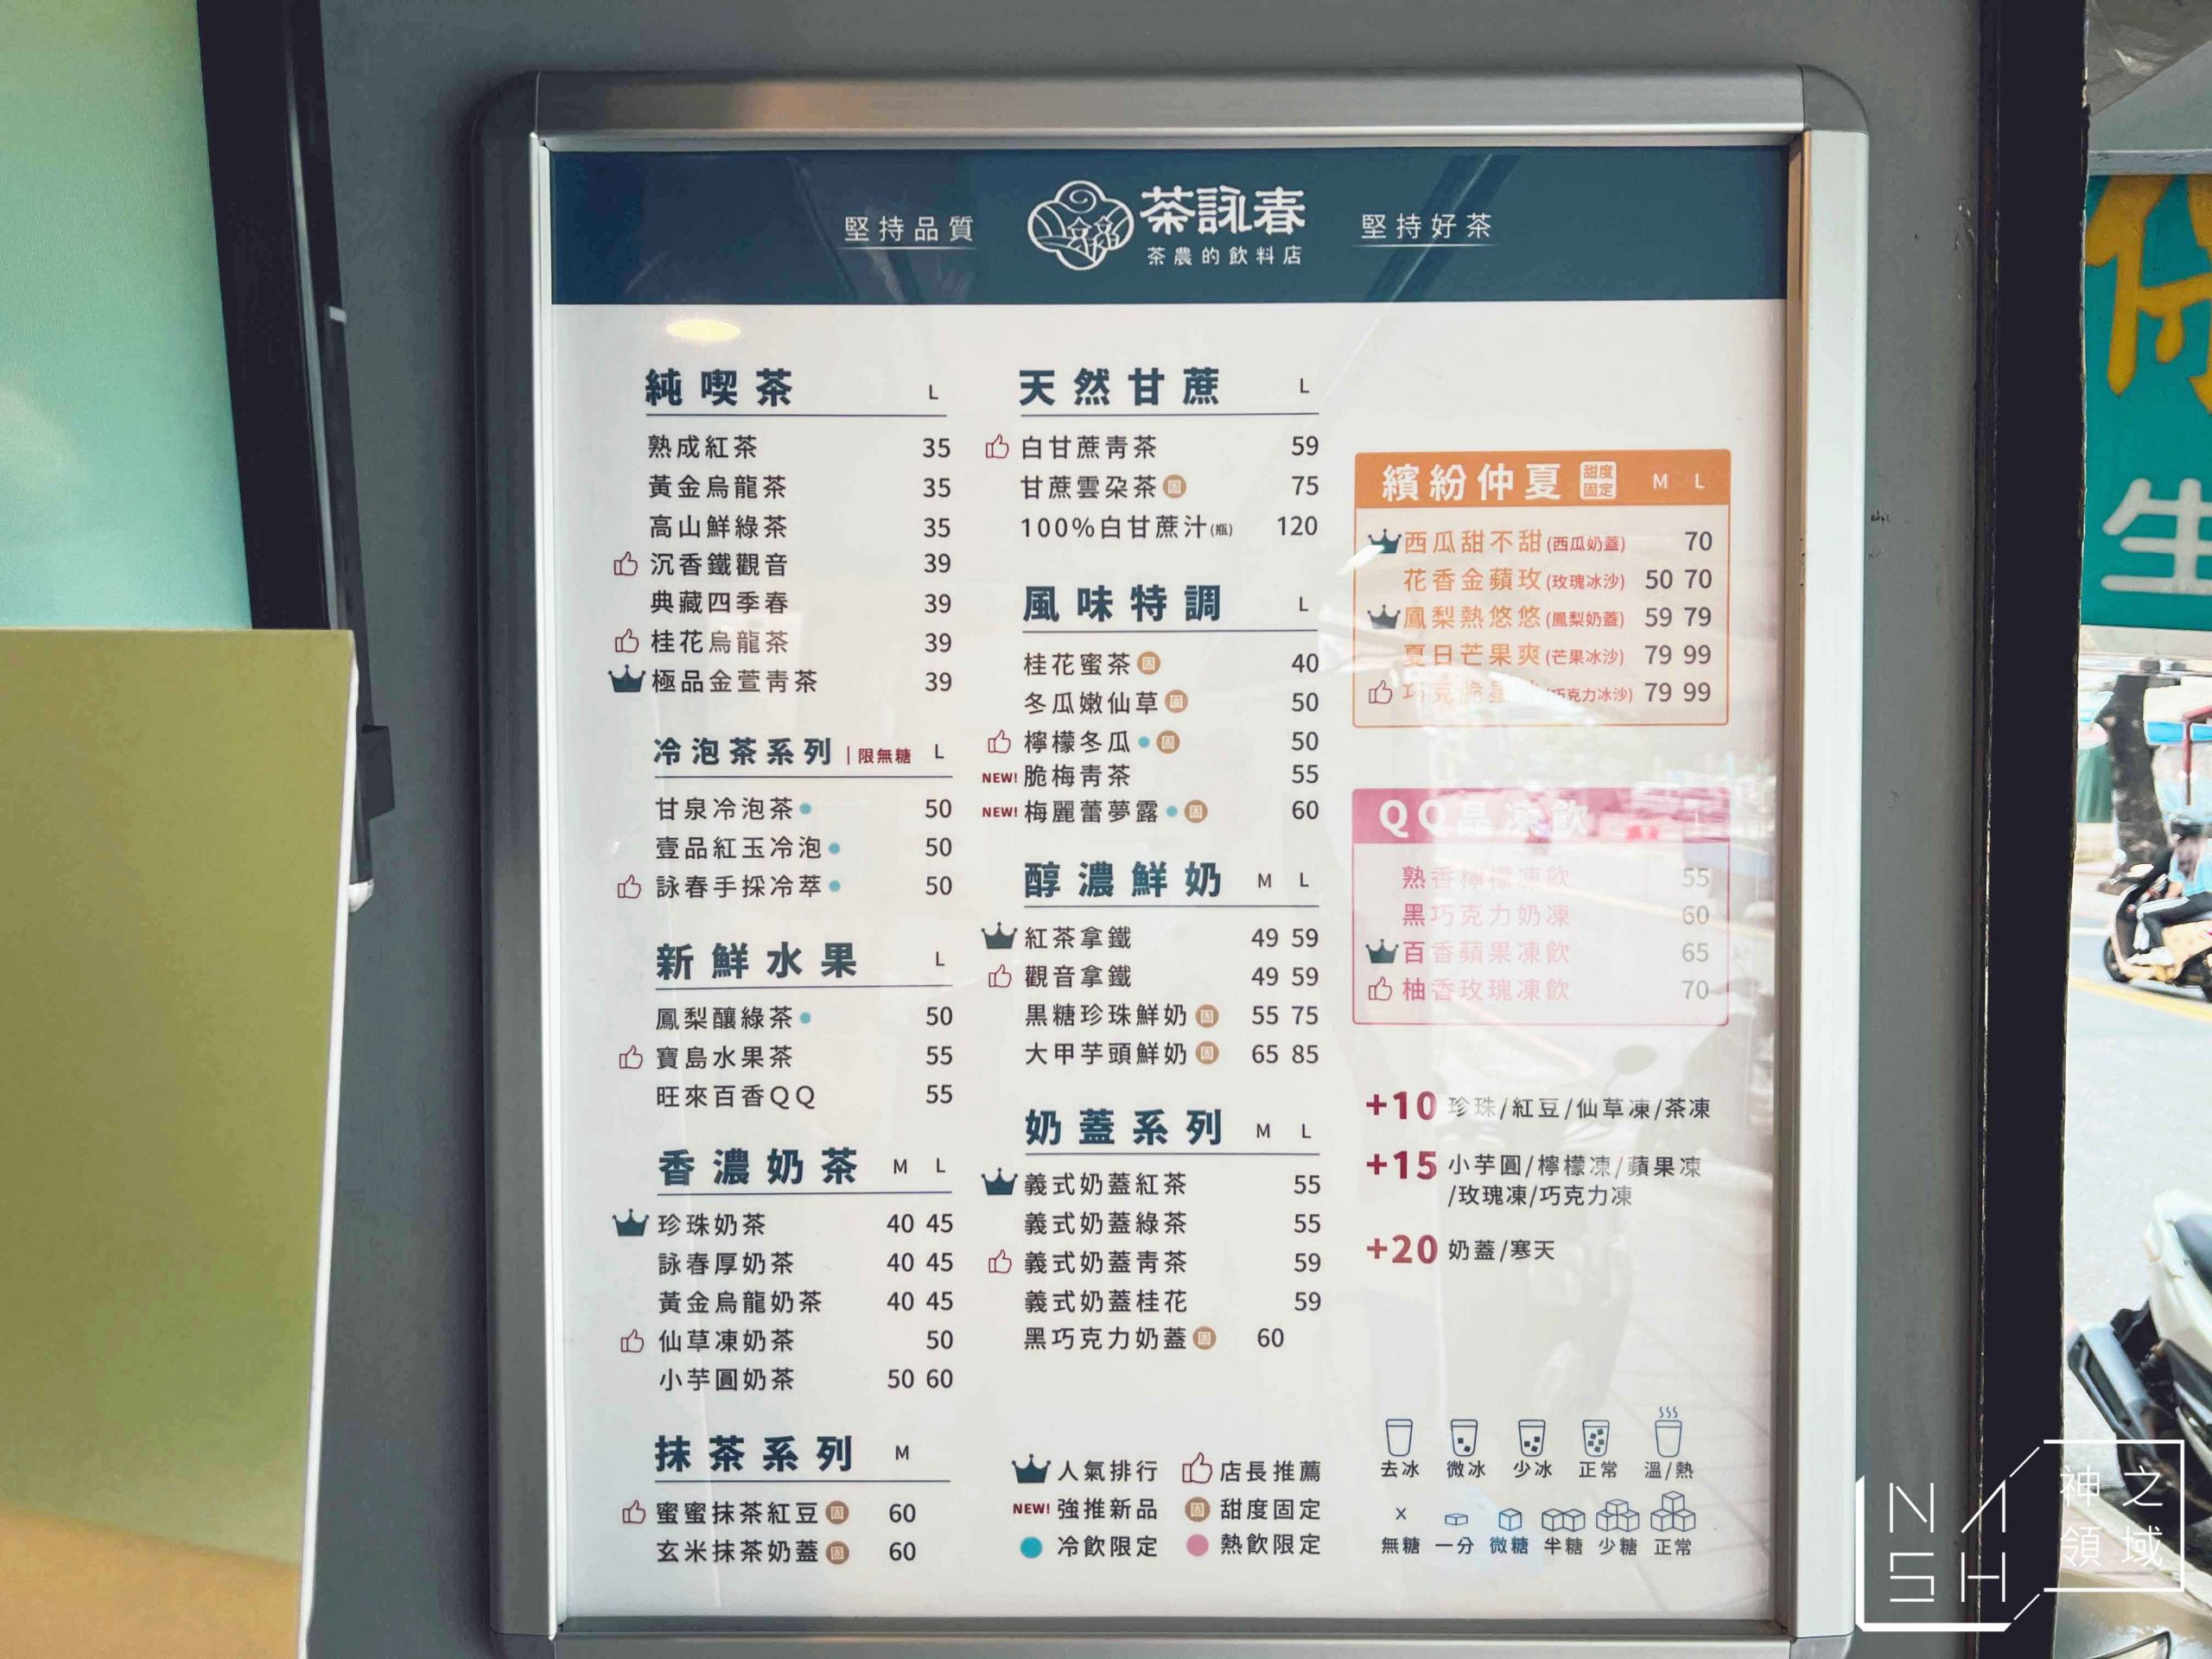 堅持品質
茶詠春
茶農的飲料店
堅持好茶
純喫茶 L
熟成紅茶 35
黃金烏龍茶 35
高山鮮綠茶 35
沉香鐵觀音 39
典藏四季春 39
桂花烏龍茶 39
極品金萱青茶 39
冷泡茶系列 |限無糖 L
甘泉冷泡茶 50
壹品紅玉冷泡 50
詠春手採冷萃 50
新鮮水果 L
鳳梨釀綠茶 50
寶島水果茶 55
旺來百香QQ 55
香濃奶茶 M L
珍珠奶茶 40 45
詠春厚奶茶 40 45
黃金烏龍奶茶 40 45
仙草凍奶茶 50
小芋圓奶茶 50 60
抹茶系列 M
蜜蜜抹茶紅豆 固 60
玄米抹茶奶蓋 固 60
天然甘蔗 L
白甘蔗青茶 59
甘蔗雲朶茶 固 75
100%白甘蔗汁(瓶) 120
風味特調 L
桂花蜜茶 固 40
冬瓜嫩仙草 固 50
檸檬冬瓜 固 50
NEW! 脆梅青茶 55
NEW! 梅麗蕾夢露 固 60
醇濃鮮奶 M L
紅茶拿鐵 49 59
觀音拿鐵 49 59
黒糖珍珠鮮奶 固 55 75
大甲芋頭鮮奶 固 65 85
奶蓋系列 M L
義式奶蓋紅茶 55
義式奶蓋綠茶 55
義式奶蓋青茶 59
義式奶蓋桂花 59
黑巧克力奶蓋 固 60
人氣排行 店長推薦
NEW! 強推新品 固 甜度固定
冷飲限定 熱飲限定
繽紛仲夏 甜度固定 M L
西瓜甜不甜(西瓜奶蓋) 70
花香金蘋玫(玫瑰冰沙) 50 70
鳳梨熱悠悠(鳳梨奶蓋) 59 79
夏日芒果爽(芒果冰沙) 79 99
巧克脆星(巧克力冰沙) 79 99
QQ晶凍飲 L
熟香檸檬凍飲 55
黑巧克力奶凍 60
百香蘋果凍飲 65
柚香玫瑰凍飲 70
+10 珍珠/紅豆/仙草凍/茶凍
+15 小芋圓/檸檬凍/蘋果凍
/玫瑰凍/巧克力凍
+20 奶蓋/寒天
去冰 微冰 少冰 正常 溫/熱
無糖 一分 微糖 半糖 少糖 正常
生
NASH
神之領域